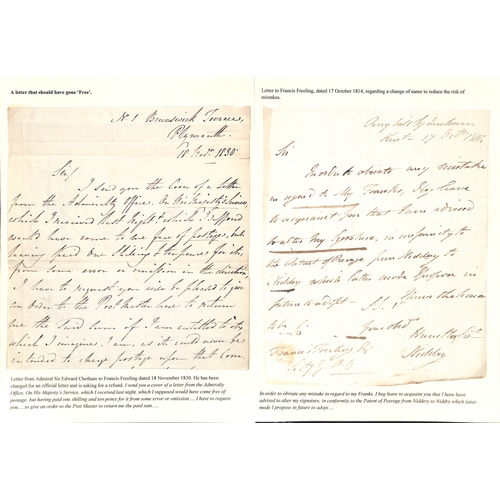 A letter that should have gone 'Free'.
No. 1 Brunswick Terrace,
Plymouth.
18 Novr. 1830.
Sir/
I send you the Cover of a Letter
from the Admiralty Office, On His Majesty's Service,
which I received last Night, & which I supposed
would have come to me free of postage, but
having paid One Shilling & ten pence for it,
from some error or omission in the direction,
I have to request you will be pleased to give
an Order to the Post Master here to return
me the said sum if I am entitled to it,
which I imagine I am, as it could never be
intended to charge postage upon that Cover.
Letter from Admiral Sir Edward Chetham to Francis Freeling dated 18 November 1830. He has been
charged for an official letter and is asking for a refund. I send you a cover of a letter from the Admiralty
Office. On His Majesty's Service, which I received last night, which I supposed would have come free of
postage, but having paid one shilling and ten pence for it from some error or omission.....I have to request
you.....to give an order to the Post Master to return me the paid sum.....
Letter to Francis Freeling, dated 17 October 1814, regarding a change of name to reduce the risk of
mistakes.
Kent 17
Sir
In order to obviate any mistake
in regard to My Franks, I beg leave
to acquaint you that I am advised
to alter my Signature, in conformity to
the Patent of Peerage from Niddery to
Niddry which latter mode I propose in
future to adopt
I have the honor
to be Sir
Your obedt
Niddry
Francis Freeling Esq
In order to obviate any mistake in regard to my Franks, I beg leave to acquaint you that I have been
advised to alter my signature, in conformity to the Patent of Peerage from Niddery to Niddry which latter
mode I propose in future to adopt....